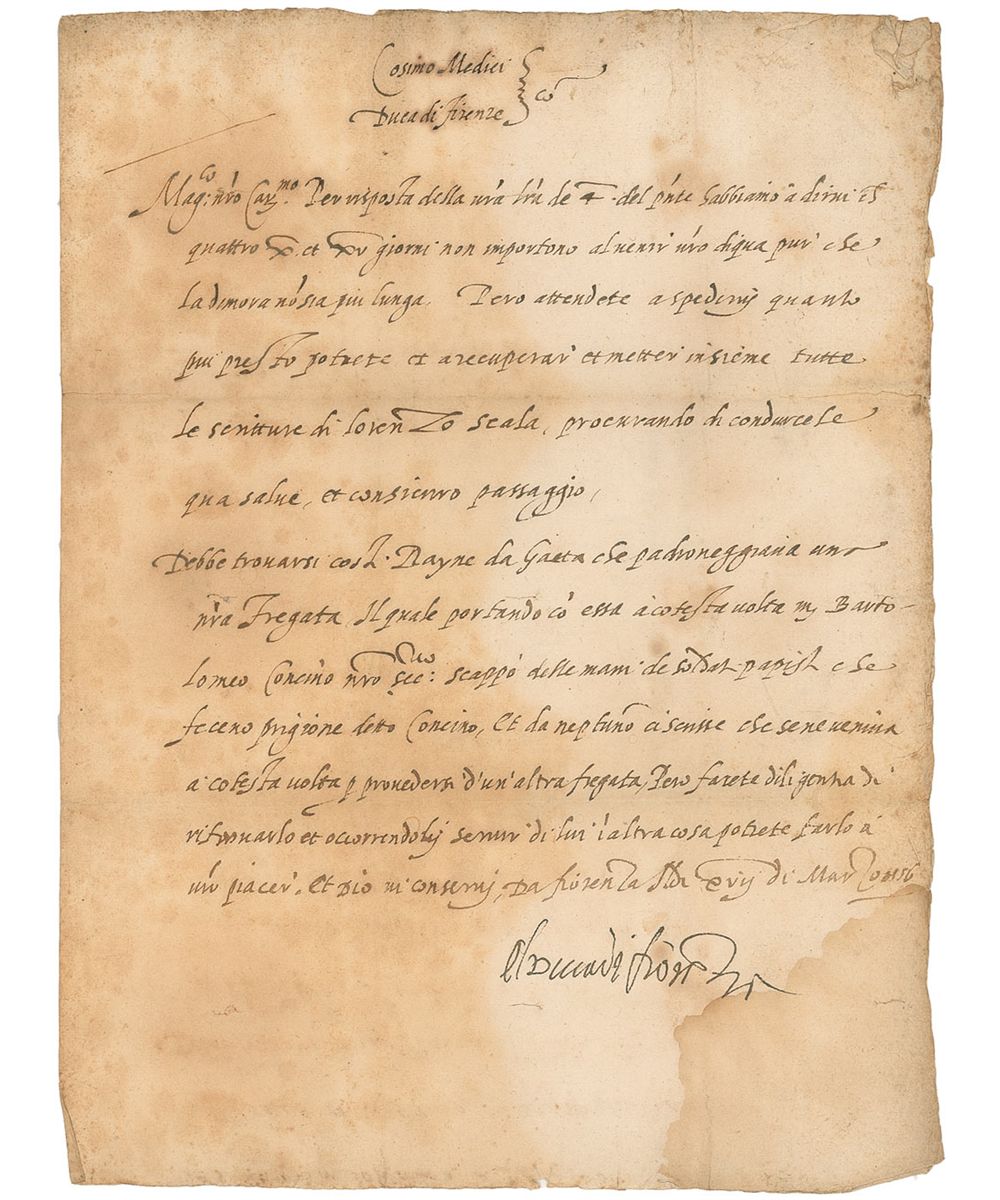 Cosimo Medici
Duca di fiorenze
Mag:co nr̃o Car.mo Per risposta della vr̃a lr̃a de 4 · del pñte habbiamo a dirui ch
quattro x et xv giorni non importono al venir vr̃o di qua pur' che
la dimora nõ sia piu lunga. Pero attendete a spedirui quanto
piu presto potrete et a recuperar' et metter' insieme tutte
le scritture di lorenzo scala, procurando di condurcele
qua salue, et con sicuro passaggio,
Debbe trouarsi costi Rayne da Gaeta che padroneggiaua una
nr̃a Fregata, Il quale portando cõ essa a cotesta volta m. Barto-
lomeo Concino nr̃o sec:rio scappò delle mani de soldati papisti che
feceno prigione detto Concino, Et da neptuno ci scrisse che se ne veniua
a cotesta volta p prouedersi d'un'altra fregata, Pero farete diligenza di
ritrouarlo et occorrendoui seruir' di lui i altra cosa potrete farlo a
vr̃o piacer'. Et Dio ui conserui, Da fiorenza lli xvij di Marzo 1556
El Duca di fiorenza